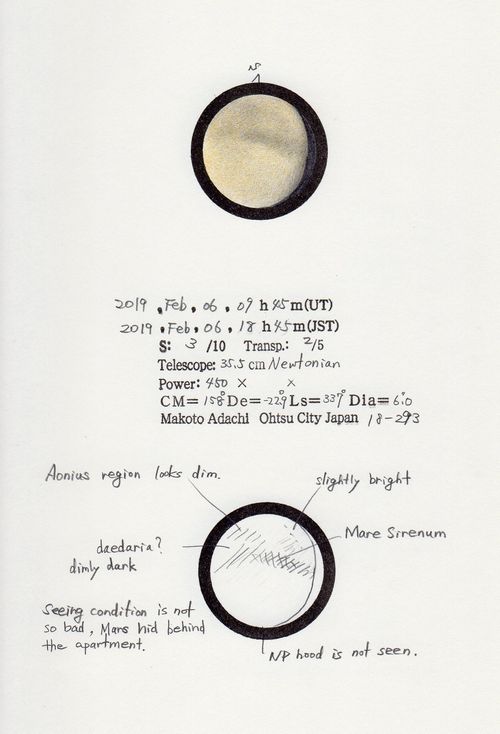 2019 , Feb , 06 , 09 h 45 m(UT)
2019 , Feb , 06 , 18 h 45 m(JST)
S: 3 /10 Transp.: 2/5
Telescope: 35.5 cm Newtonian
Power: 450 × ×
CM= 158° De= -22.9 Ls= 337° Dia= 6.0
Makoto Adachi Ohtsu City Japan 18-293
Aonius region looks dim.
slightly bright
daedaria?
dimly dark
Mare Sirenum
Seeing condition is not
so bad, Mars hid behind
the apartment.
NP hood is not seen.